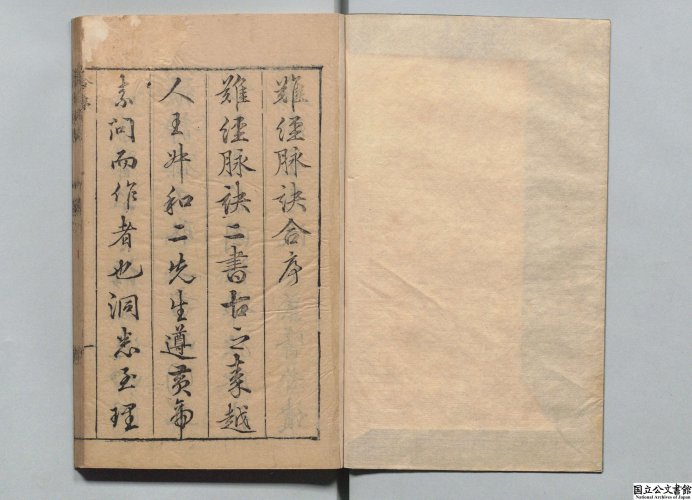 難經脉訣合序
難經脉訣二書古之秦越
人王叔和二先生遵黄帝
素問而作者也洞悉至理
国立公文書館
National Archives of Japan